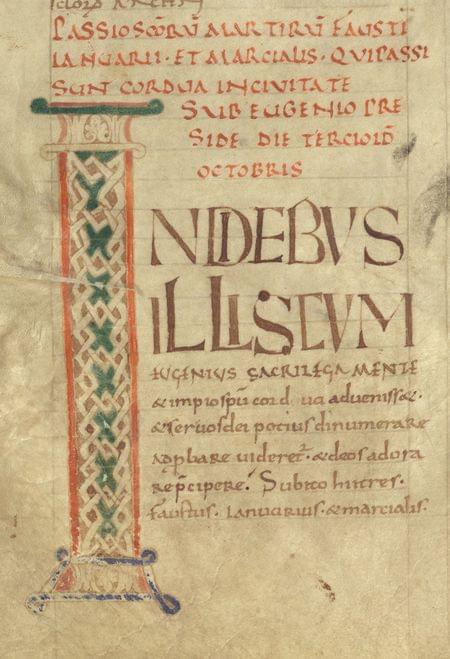 PASSIO SCŌRŪ MARTIRŪ FAUSTI
IANUARII · ET MARCIALIS · QUI PASSI
SUNT CORDUA IN CIVITATE
SUB EUGENIO PRE
SIDE DIE TERCIO ID̄
OCTOBRIS
IN DIEBVS
ILLIS CVM
EUGENIUS SACRILEGA MENTE
& impio spū cordua adveniss&·
& servos dei pocius dinumerare
videret᷑· & deos adora
re p̄cipere· Subito hi tres·
faustus· ianuarius· & marcialis·